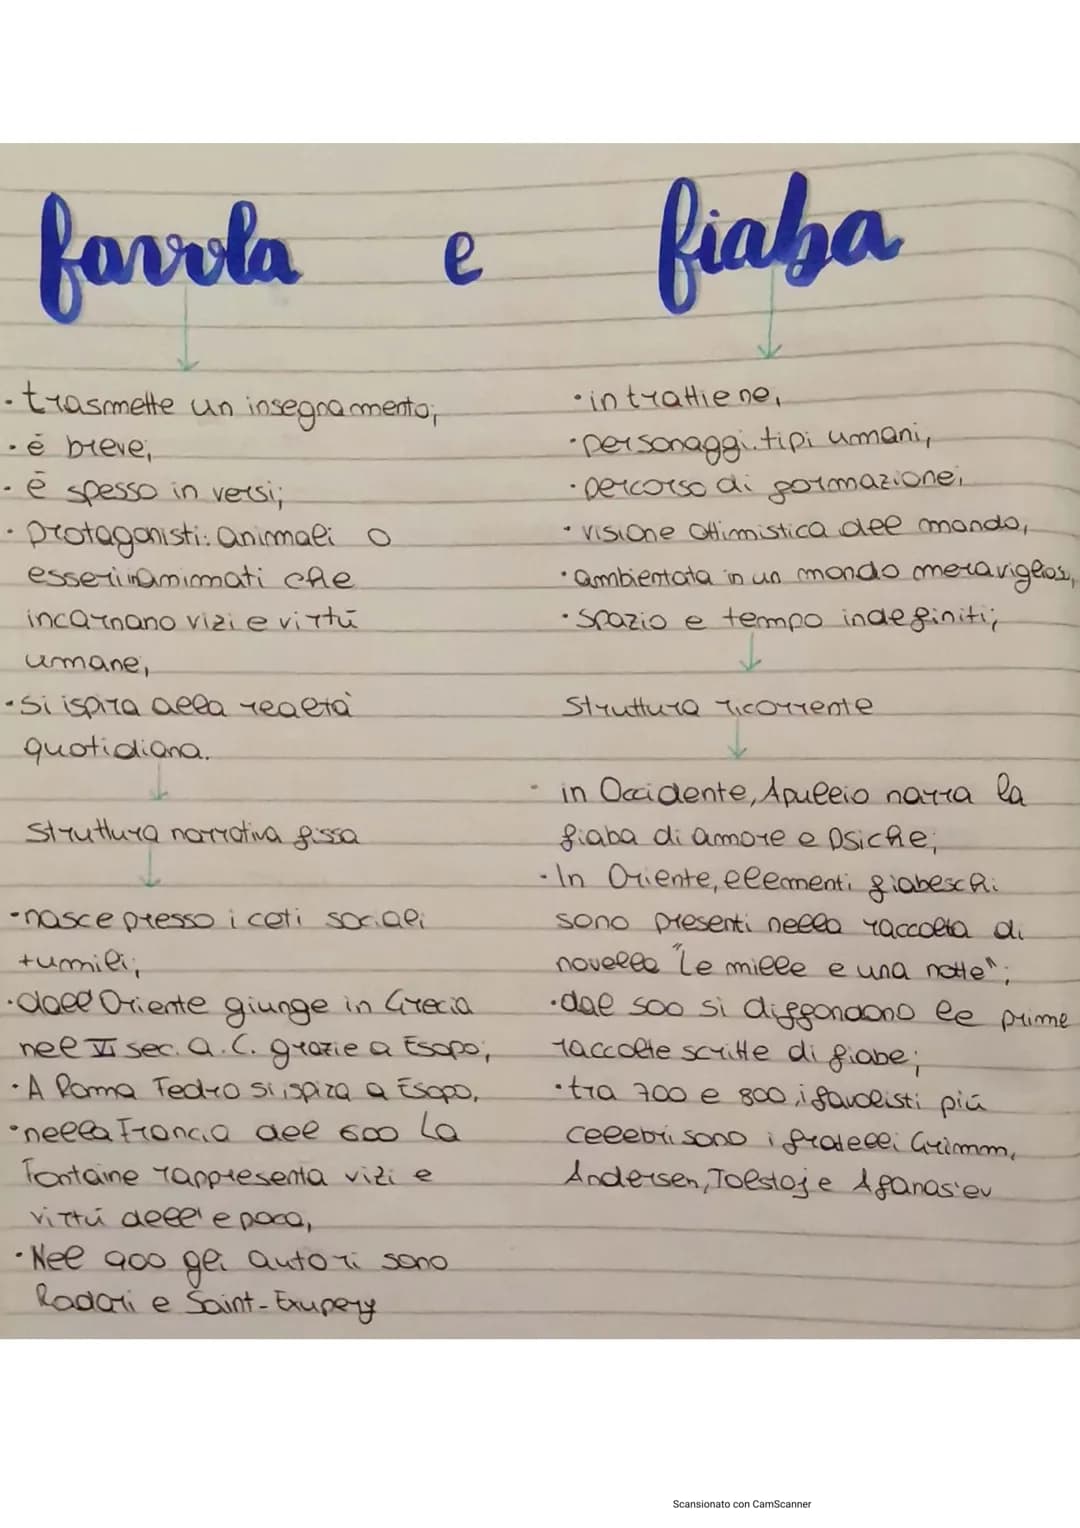 favola e fiaba
· trasmette un insegnamento;
· è breve;
· è spesso in versi;
· protagonisti: animali o
esseri inanimati che
incarnano vizi e virtù
umane;
· si ispira alla realtà
quotidiana.
struttura narrativa fissa
· nasce presso i ceti sociali
+umili;
· dall'Oriente giunge in Grecia
nel VI sec. a.C. grazie a Esopo;
· A Roma Fedro si ispira a Esopo,
· nella Francia del 600 La
Fontaine rappresenta vizi e
virtù dell'epoca,
· Nel 900 gli autori sono
Rodari e Saint-Exupery
· intrattiene,
· personaggi: tipi umani,
· percorso di formazione;
· visione ottimistica del mondo,
· ambientata in un mondo meraviglios,
· spazio e tempo indefiniti;
struttura ricorrente
· in Occidente, Apuleio narra la
fiaba di amore e Psiche;
· In Oriente, elementi fiabeschi
sono presenti nella raccolta di
novelle "Le mille e una notte";
· dal 500 si diffondono le prime
raccolte scritte di fiabe;
· tra 700 e 800, i favolisti più
celebri sono i fratelli Grimm,
Andersen, Tolstoj e Afanas'ev
Scansionato con CamScanner